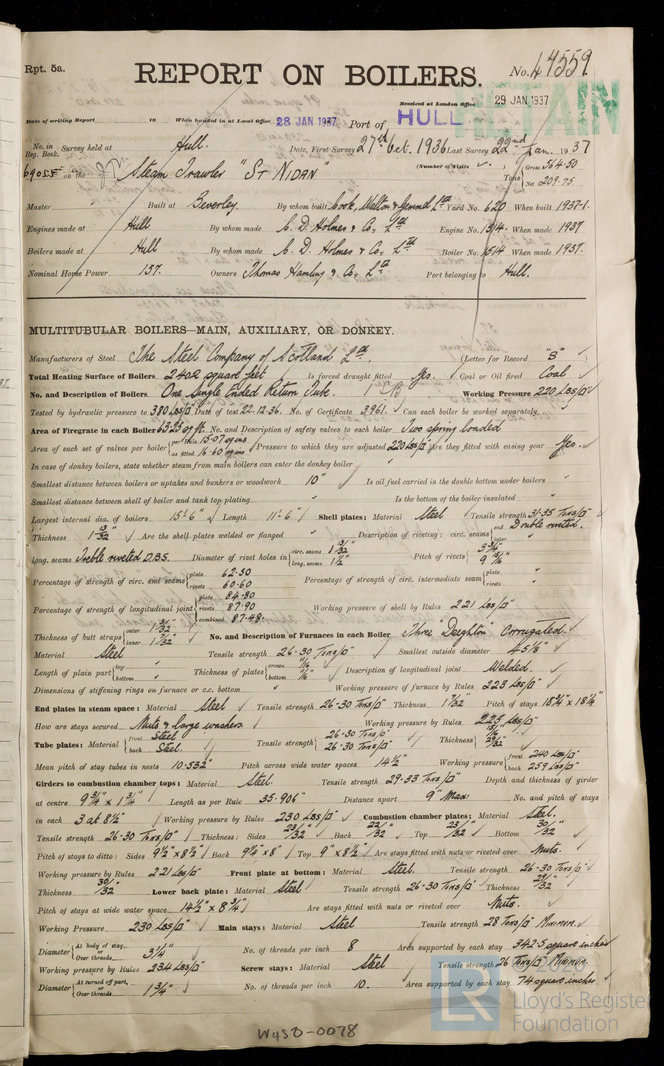 Rpt. 5a.
REPORT ON BOILERS.
No. 47559
Received at London Office 29 JAN 1937
RETAIN
Date of writing Report 19 When handed in at Local Office 28 JAN 1937 Port of HULL
No. in Reg. Book. Survey held at Hull. Date, First Survey 27th Oct. 1936 Last Survey 22nd Jan. 1937
on the Steam Trawler "St Nidan" (Number of Visits ) Tons Gross 564.50 Net 209.75
Master Built at Beverley. By whom built Cook, Welton & Gemmell Ltd Yard No. 620 When built 1937-1.
Engines made at Hull By whom made C. D. Holmes & Co. Ltd Engine No. 1514 When made 1937
Boilers made at Hull By whom made C. D. Holmes & Co. Ltd Boiler No. 1514 When made 1937.
Nominal Horse Power 157. Owners Thomas Hamling & Co. Ltd Port belonging to Hull.
MULTITUBULAR BOILERS—MAIN, AUXILIARY, OR DONKEY.
Manufacturers of Steel The Steel Company of Scotland Ltd. (Letter for Record "S" )
Total Heating Surface of Boilers 2402 square feet Is forced draught fitted Yes. Coal or Oil fired Coal
No. and Description of Boilers One Single Ended Return Tube. Working Pressure 220 Lbs/□"
Tested by hydraulic pressure to 380 Lbs/□" Date of test 22.12.36. No. of Certificate 3961. Can each boiler be worked separately "
Area of Firegrate in each Boiler 63.25 sq ft. No. and Description of safety valves to each boiler Two spring loaded
Area of each set of valves per boiler per Rule 15.07 sq ins as fitted 16.60 sq ins Pressure to which they are adjusted 220 Lbs/□" Are they fitted with easing gear Yes.
In case of donkey boilers, state whether steam from main boilers can enter the donkey boiler "
Smallest distance between boilers or uptakes and bunkers or woodwork 10" Is oil fuel carried in the double bottom under boilers "
Smallest distance between shell of boiler and tank top plating " Is the bottom of the boiler insulated "
Largest internal dia. of boilers 15'-6" Length 11'-6" Shell plates: Material Steel Tensile strength 31-35 Tons/□"
Thickness 1 13/32" Are the shell plates welded or flanged " Description of riveting: circ. seams end Double riveted. inter. "
long. seams Treble riveted D.B.S. Diameter of rivet holes in circ. seams 1 13/32" long. seams 1 1/2" Pitch of rivets 3 3/4" 9 11/16"
Percentage of strength of circ. end seams plate 62.50 rivets 60.60 Percentage of strength of circ. intermediate seam plate " rivets "
Percentage of strength of longitudinal joint plate 84.80 rivets 87.90 combined 87.48 Working pressure of shell by Rules 221 Lbs/□"
Thickness of butt straps outer 1 3/32" inner 1 7/32" No. and Description of Furnaces in each Boiler Three "Deighton" Corrugated.
Material Steel Tensile strength 26-30 Tons/□" Smallest outside diameter 45 1/8"
Length of plain part top " bottom " Thickness of plates crown 11/16" bottom 11/16" Description of longitudinal joint Welded.
Dimensions of stiffening rings on furnace or c.c. bottom " Working pressure of furnace by Rules 223 Lbs/□"
End plates in steam space: Material Steel Tensile strength 26-30 Tons/□" Thickness 1 7/32" Pitch of stays 18 1/4" x 18 1/4"
How are stays secured Nuts & Large washers Working pressure by Rules 225 Lbs/□"
Tube plates: Material front Steel back Steel. Tensile strength 26-30 Tons/□" 26-30 Tons/□" Thickness
Mean pitch of stay tubes in nests 10.532" Pitch across wide water spaces 14 1/2" Working pressure front 240 Lbs/□" back 259 Lbs/□"
Girders to combustion chamber tops: Material Steel Tensile strength 29-33 Tons/□" Depth and thickness of girder
at centre 9 3/4" x 1 3/4" Length as per Rule 35.906" Distance apart 9" Max. No. and pitch of stays
in each 3 at 8 1/2" Working pressure by Rules 230 Lbs/□" Combustion chamber plates: Material Steel.
Tensile strength 26-30 Tons/□" Thickness: Sides 23/32" Back 22/32" Top 23/32" Bottom 30/32"
Pitch of stays to ditto: Sides 9 1/2" x 8 1/2" Back 9 1/4" x 8" Top 9" x 8 1/2" Are stays fitted with nuts or riveted over Nuts.
Working pressure by Rules 221 Lbs/□" Front plate at bottom: Material Steel. Tensile strength 26-30 Tons/□"
Thickness 30/32" Lower back plate: Material Steel Tensile strength 26-30 Tons/□" Thickness 29/32"
Pitch of stays at wide water space 14 1/2" x 8 3/4" Are stays fitted with nuts or riveted over Nuts.
Working Pressure 230 Lbs/□" Main stays: Material Steel Tensile strength 28 Tons/□" Minimum.
Diameter At body of stay, or Over threads 3 1/4" No. of threads per inch 8 Area supported by each stay 342.5 square inches
Working pressure by Rules 234 Lbs/□" Screw stays: Material Steel Tensile strength 26 Tons/□" Minimum.
Diameter At turned off part, or Over threads 1 3/4" No. of threads per inch 10. Area supported by each stay 74 square inches
W450-0078
© 2020
LR
Lloyd's Register
Foundation